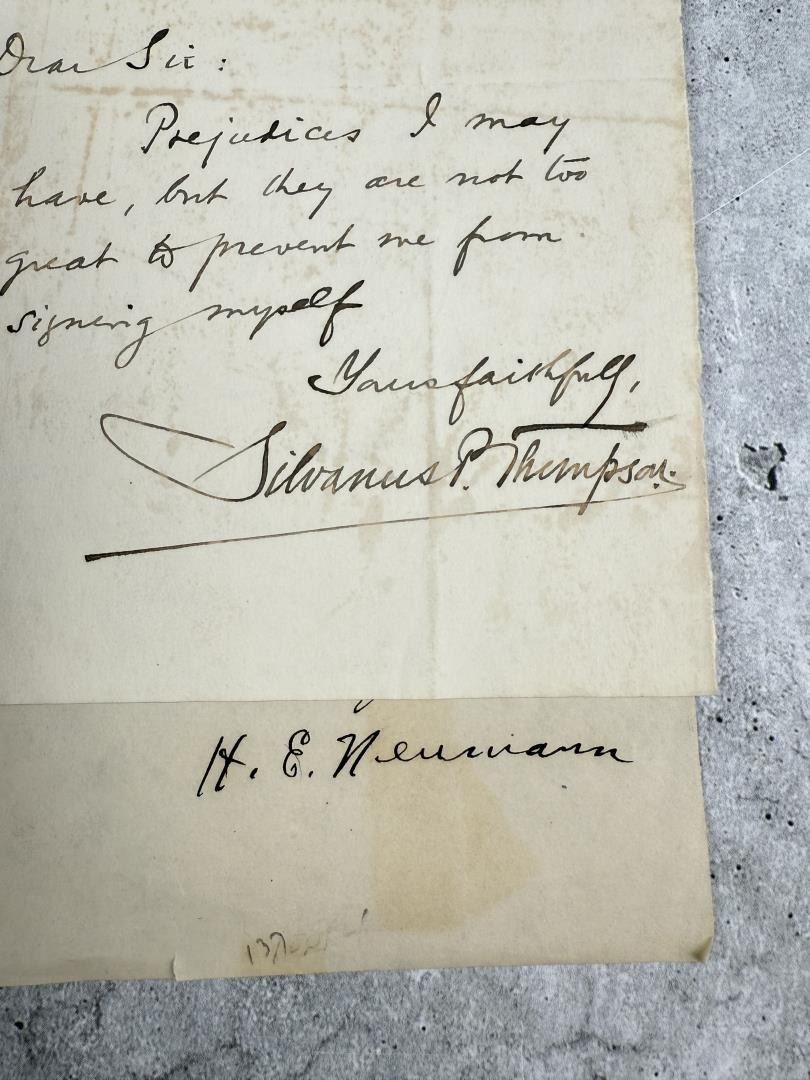 Dear Sir:
Prejudices I may
have, but they are not too
great to prevent me from
signing myself
Yours faithfully,
Silvanus P. Thompson.
H. E. Neumann